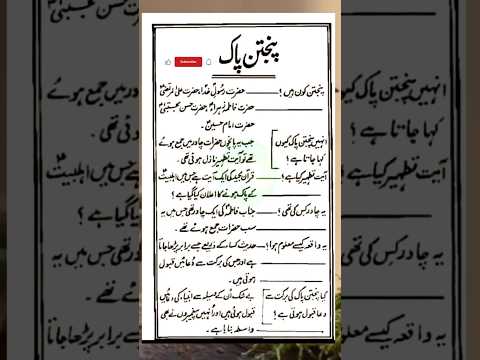 پنجتن پاک
Subscribe
پنجتن کون ہیں؟ حضرت رسولِ خدا، حضرت علی مرتضیٰؑ
حضرت فاطمہ زہراؑ، حضرت حسن مجتبیٰؑ
حضرت امام حسینؑ۔
انہیں پنجتن پاک کیوں جب یہ پانچوں حضرات چادر میں جمع ہوئے
کہا جاتا ہے؟ تھے تو آیت تطہیر نازل ہوئی تھی۔
آیت تطہیر کیا ہے؟ قرآن مجید کی ایک آیت ہے جس میں اہلبیتؑ
کے پاک ہونے کا اعلان کیا گیا ہے۔
یہ چادر کس کی تھی؟ جناب فاطمہؑ کی ایک چادر تھی جس میں یہ
سب حضرات جمع ہوئے تھے۔
یہ واقعہ کیسے معلوم ہوا؟ حدیث کساء کے ذریعے جسے برابر پڑھا جاتا
ہے اور جس کی برکت سے دُعائیں قبول
ہوتی ہیں۔
کیا پنجتن پاک کی برکت سے بے شک اُن کے وسیلہ سے انبیاء کی دعائیں
دعا قبول ہوتی ہے؟ قبول ہوتی ہیں اور اُنہیں پیغمبروں نے بھی
واسطہ بنایا ہے۔